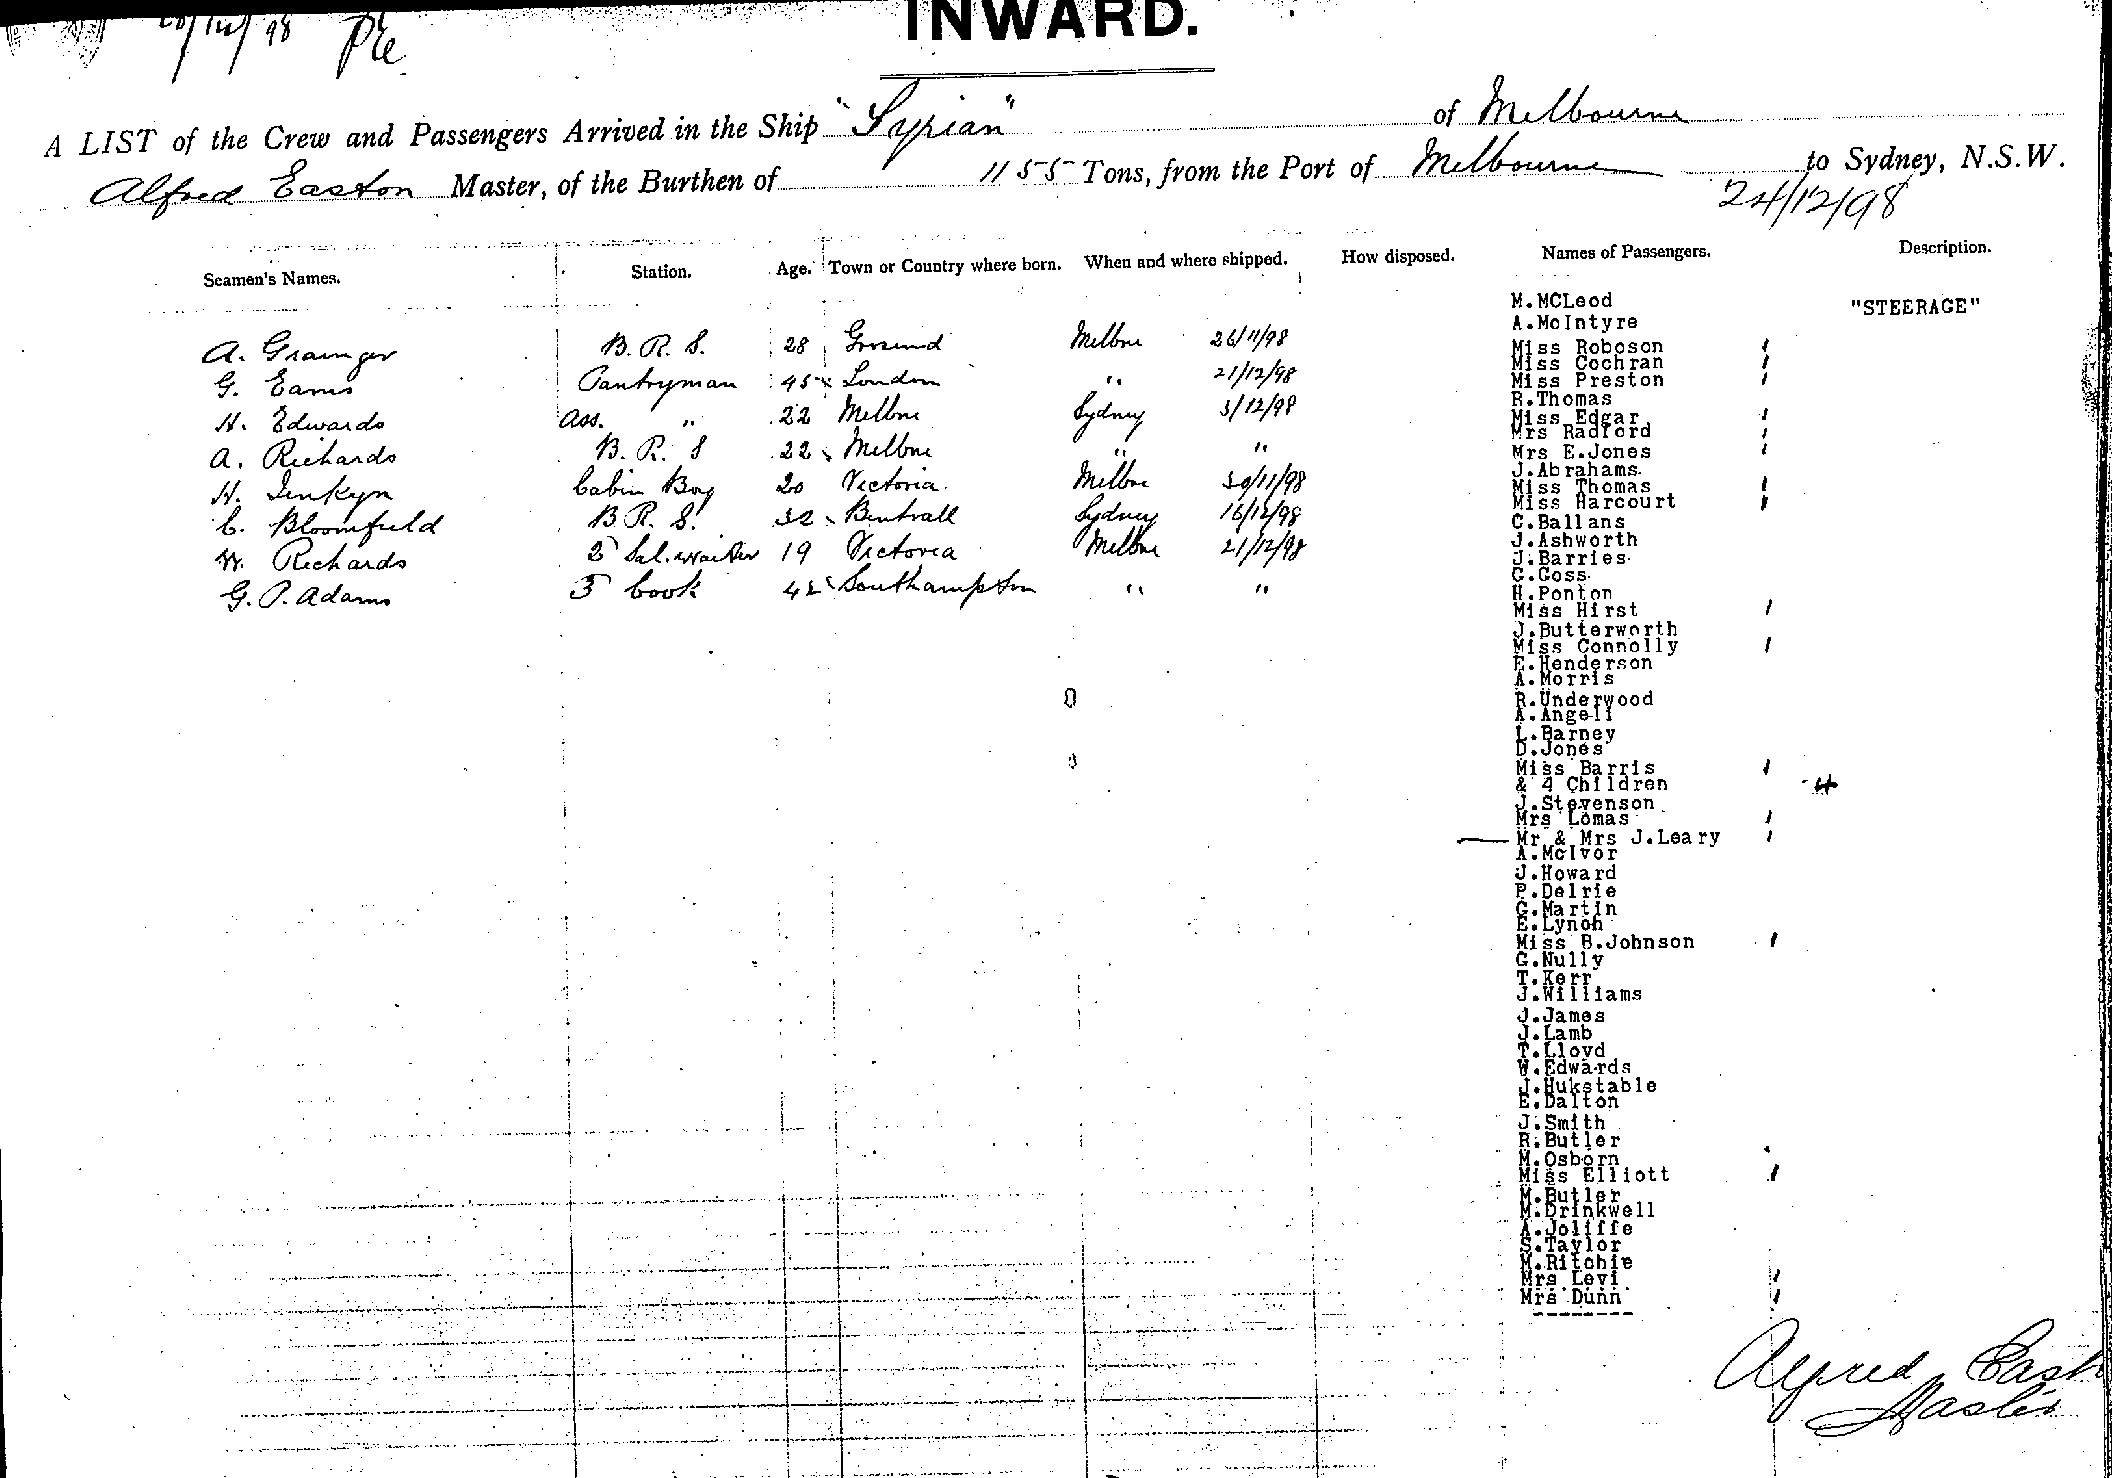 /98
INWARD.
A LIST of the Crew and Passengers Arrived in the Ship "Syrian" of Melbourne
Alfred Easton Master, of the Burthen of 1155 Tons, from the Port of Melbourne to Sydney, N.S.W.
24/12/98
Seamen's Names. Station. Age. Town or Country where born. When and where shipped. How disposed. Names of Passengers. Description.
A. Grainger B. R. S. 28 Melbne 26/11/98
G. Eams Pantryman 45 London " 21/12/98
H. Edwards Ass. " 22 Melbne Sydney 3/12/98
A. Richards B. R. S 22 Melbne " "
H. Jenkyn Cabin Boy 20 Victoria Melbne 30/11/98
C. Bloomfield B R. S. 32 Sydney 16/12/98
W. Richards 2 Sal. waiter 19 Victoria Melbne 21/12/98
G. P. Adams 3 Cook 42 Southampton " "
M.MCLeod "STEERAGE"
A.McIntyre
Miss Roboson
Miss Cochran
Miss Preston
R.Thomas
Miss Edgar
Mrs Radford
Mrs E.Jones
J.Abrahams
Miss Thomas
Miss Harcourt
C.Ballans
J.Ashworth
J.Barries
G.Goss
H.Ponton
Miss Hirst
J.Butterworth
Miss Connolly
E.Henderson
A.Morris
R.Underwood
A.Angell
L.Barney
D.Jones
Miss Barris
& 4 Children 4
J.Stevenson
Mrs Lomas
Mr & Mrs J.Leary
A.McIvor
J.Howard
P.Delrie
G.Martin
E.Lynch
Miss B.Johnson
G.Nully
T.Kerr
J.Williams
J.James
J.Lamb
T.Lloyd
W.Edwards
J.Hukstable
E.Dalton
J.Smith
R.Butler
M.Osborn
Miss Elliott
M.Butler
M.Drinkwell
A.Joliffe
S.Taylor
M.Ritchie
Mrs Levi
Mrs Dunn
--------
Alfred East
Master